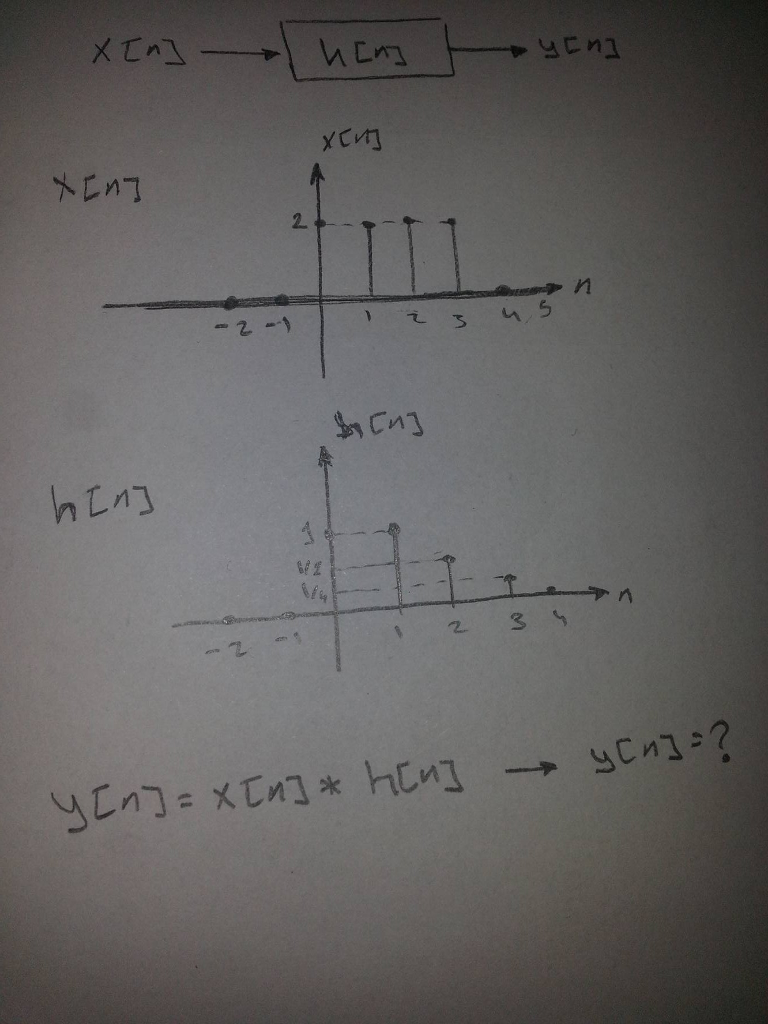 x[n] → h[n] → y[n]
x[n]
x[n]
2
n
-2 -1 1 2 3 4 5
h[n]
h[n]
1
1/2
1/4
n
-2 -1 1 2 3 4
y[n] = x[n] * h[n] → y[n] = ?